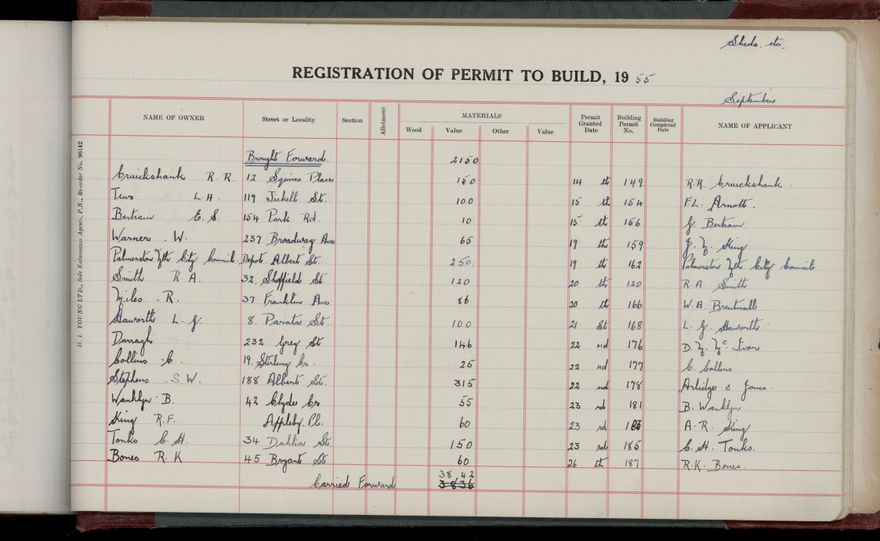 Sheds. etc.
REGISTRATION OF PERMIT TO BUILD, 19 55
September
NAME OF OWNER Street or Locality Section Allotment MATERIALS Permit Granted Date Building Permit No. Building Completed Date NAME OF APPLICANT
Wood Value Other Value
Brought Forward. 2150
Cruickshank R. R. 12 Squires Place 150 14 th 149 R.R. Cruickshank.
L.H. 119 St. 100 15 th 154 F.L. Arnott.
Bertram E. S. 154 Park Rd. 10 15 th 156 Bertram.
Warner. W. 237 Broadway Ave 65 19 th 159 King
Palmerston Nth City Council Depot Albert St. 250. 19 th 162 Palmerston Nth City Council
Smith R A. 32. Sheffield St 120 20 th 120 R.A. Smith.
R. 37 Franklin Ave 86 20 th 166 W.A. Brentnall
Haworth L. G. 8. St. 100 21 st 168 L. G Haworth
Darragh 232 Grey St 146 22 nd 176 D.
Collins. C. 19. Stirling Cr. 25 22 nd 177 C. Collins
Stephens. S.W. 188 Albert St. 315 22 nd 178 Arlidge & Jones.
Wanklyn. B. 42 Clyde Cr 55 23 rd 181 B. Wanklyn
King R.F. Appleby. Pl. 60 23 rd A.R. King
Tonks C. H. 34 Dahlia St. 150 23 rd 185 C.H. Tonks.
Bones R. K 45 Bryant St 60 26 th 187 R.K. Bones.
3842
Carried Forward 3836
H. I. YOUNG LTD., Sole Kalamazoo Agents, P.N., Re-order No. 96142